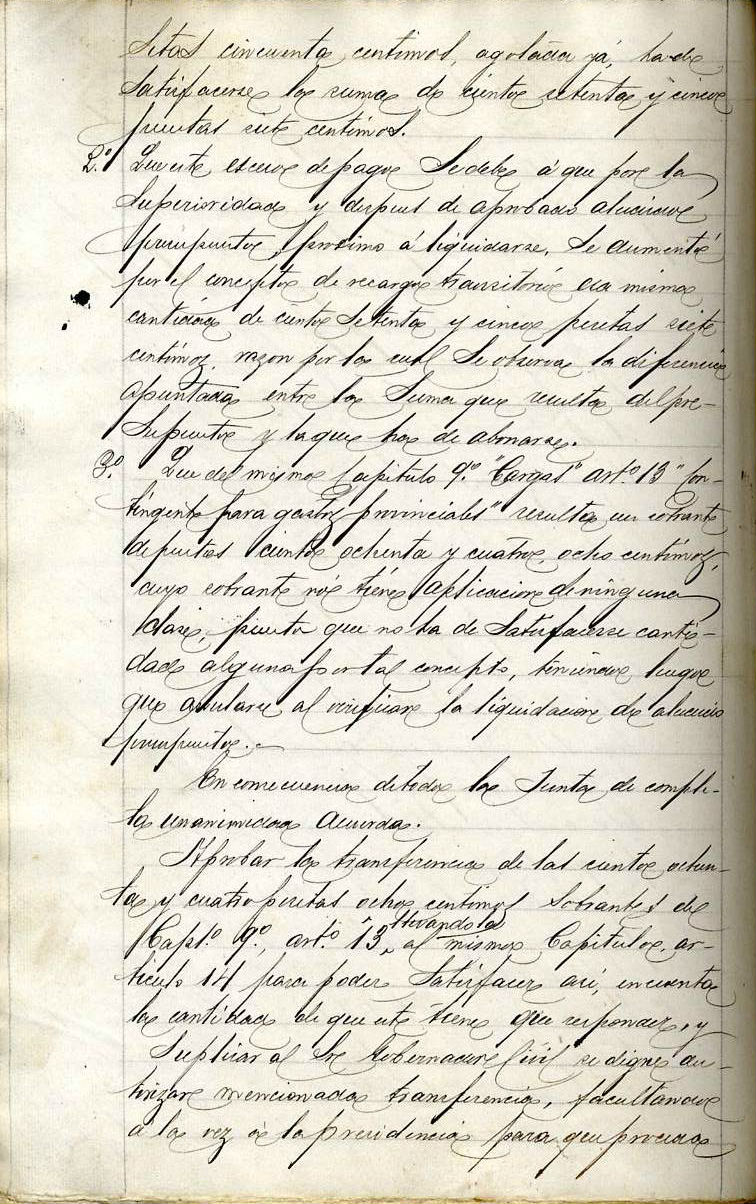 setas cincuenta centimos, agotada yá, ha de
satisfacerse la suma de ciento setenta y cinco
pesetas siete centimos.
2.º Que este exceso de pago se debe á que por la
Superioridad y despues de aprobado alucido
presupuesto, proximo á liquidarse, se aumentó
por el concepto de recargo transitorio esa misma
cantidad de ciento setenta y cinco pesetas siete
centimos, razon por la cual se observa la diferencia
apuntada entre la suma que resulta del pre-
supuesto y la que ha de abonarse.
3.º Que del mismo Capitulo 9.º "Cargas" artº 13 "Con-
tingente para gastos provinciales" resulta un sobrante
de pesetas ciento ochenta y cuatro, ocho centimos,
cuyo sobrante nó tiene aplicacion de ninguna
clase, puesto que no ha de satisfacerse canti-
dad alguna por tal concepto, teniendo luego
que anularse al verificar la liquidacion de alucido
presupuesto.
En consecuencia de todo la Junta de comple-
ta unanimidad acuerda.
Aprobar la transferencia de las ciento ochen-
ta y cuatro pesetas ocho centimos sobrantes del
Capt.º 9º, artº 13, llevandola al mismo Capitulo, ar-
ticulo 14 para poder satisfacer asi, en cuenta
la cantidad de que este tiene que responder, y
Suplicar al Sr Gobernador Civil se digne au-
torizar mencionada transferencia, facultando
á la vez á la presidencia para que proceda